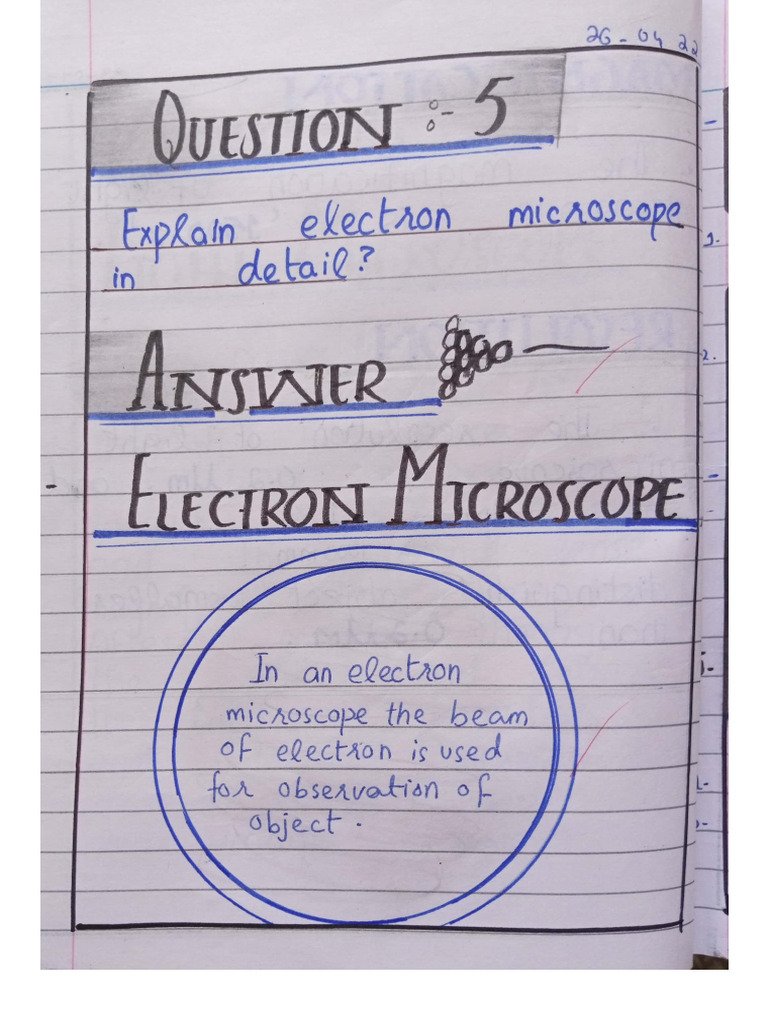 26-04 22
QUESTION :- 5
Explain electron microscope
in detail?
ANSWER
ELECTRON MICROSCOPE
In an electron
microscope the beam
of electron is used
for observation of
object.
1.
2.